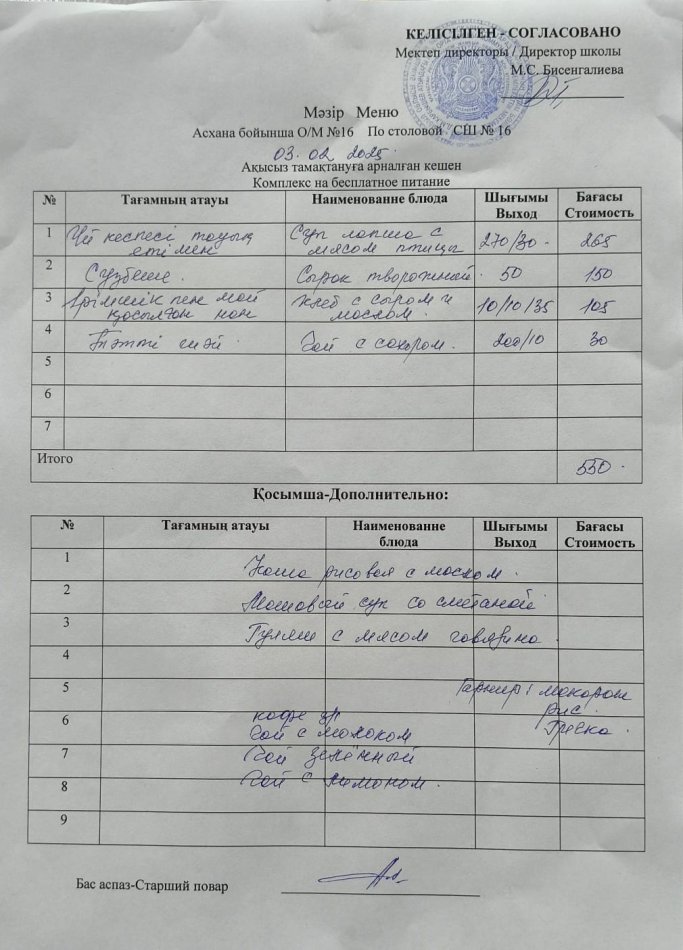 КЕЛІСІЛГЕН - СОГЛАСОВАНО
Мектеп директоры / Директор школы
М.С. Бисенгалиева
Мәзір Меню
Асхана бойынша О/М №16 По столовой СШ № 16
03.02 2025
Ақысыз тамақтануға арналған кешен
Комплекс на бесплатное питание
№ Тағамның атауы Наименование блюда Шығымы Выход Бағасы Стоимость
1 Үй кеспесі тауық етімен Суп лапша с мясом птицы 270/30 265
2 Сүзбеше. Сырок творожный 50 150
3 Ірімшік пен май қосылған нан Хлеб с сыром и маслом. 10/10/35 105
4 Тәтті шәй Чай с сахаром. 200/10 30
5
6
7
Итого 550
Қосымша-Дополнительно:
№ Тағамның атауы Наименование блюда Шығымы Выход Бағасы Стоимость
1 Каша рисовая с маслом.
2 Машовый суп со сметаной
3 Гуляш с мясом говядина
4
5 Гарнир: макарон
рис
6 кофе
Чай с молоком Гречка.
7 Чай зелённый
8 Чай с лимоном.
9
Бас аспаз-Старший повар